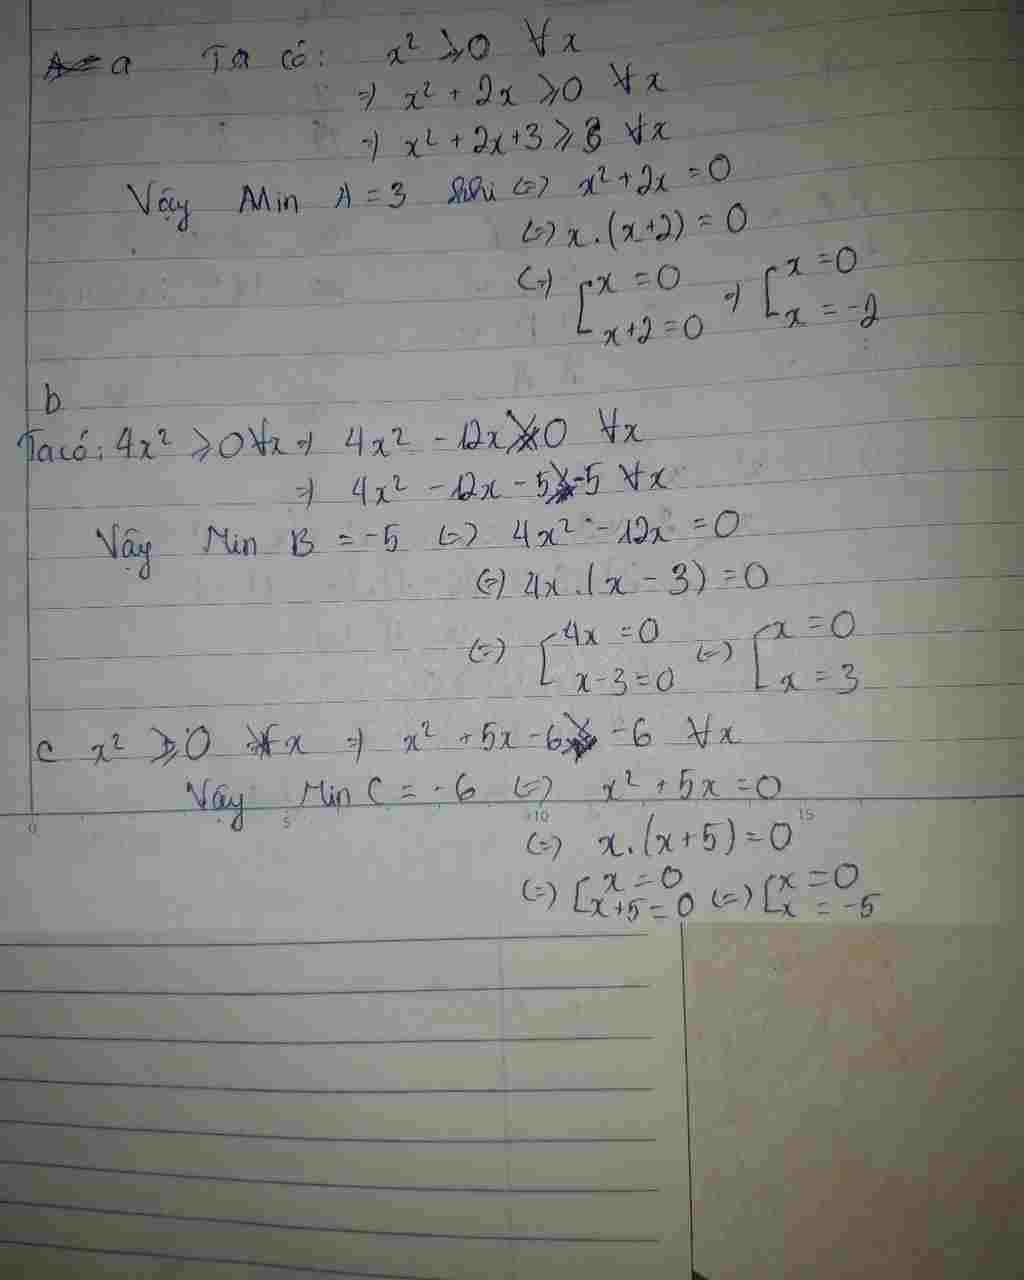 a Ta có: x² ⩾ 0 ∀x
=> x² + 2x ⩾ 0 ∀x
=> x² + 2x + 3 ⩾ 3 ∀x
Vậy Min A = 3 khi <=> x² + 2x = 0
<=> x.(x+2) = 0
<=> [x = 0 => [x = 0
x+2 = 0 x = -2
b
Ta có: 4x² ⩾ 0 ∀x => 4x² - 12x ⩾ 0 ∀x
=> 4x² - 12x - 5 ⩾ -5 ∀x
Vậy Min B = -5 <=> 4x² - 12x = 0
<=> 4x.(x - 3) = 0
<=> [4x = 0 <=> [x = 0
x-3 = 0 x = 3
c x² ⩾ 0 ∀x => x² + 5x - 6 ⩾ -6 ∀x
Vậy Min C = -6 <=> x² + 5x = 0
0 5 10 15
<=> x.(x+5) = 0
<=> [x = 0 <=> [x = 0
x+5 = 0 x = -5